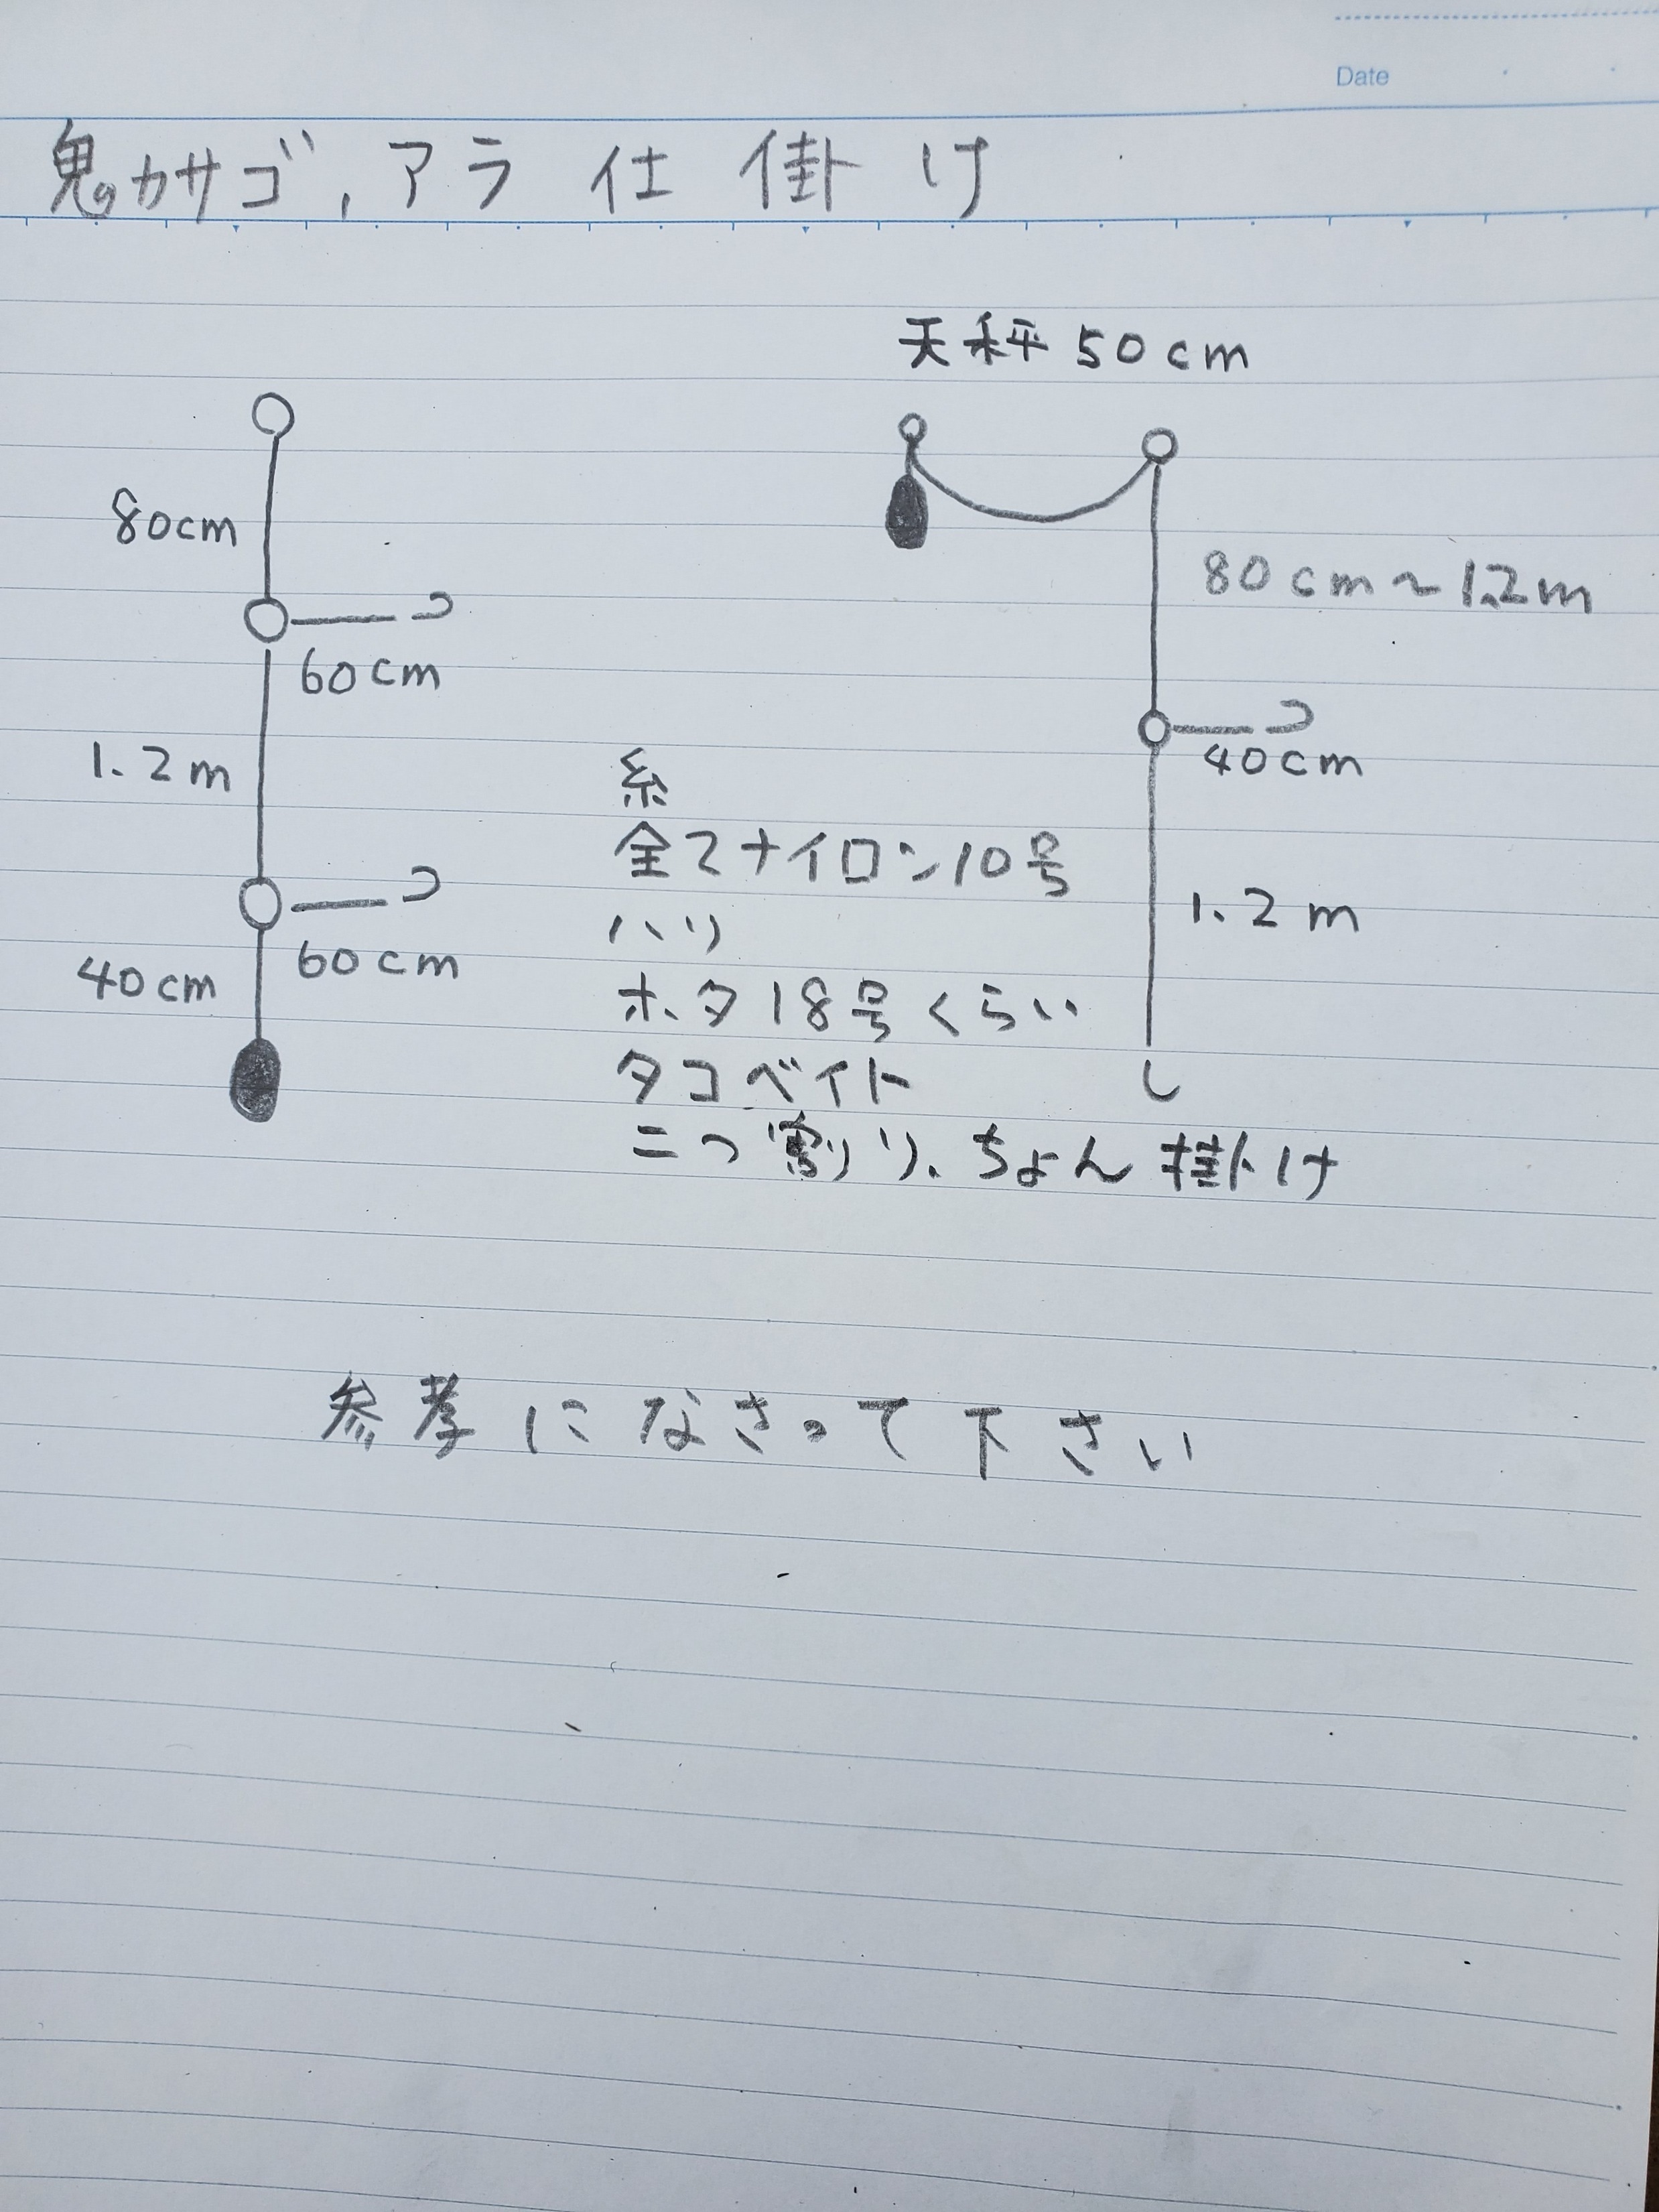 Date
鬼カサゴ、アラ仕掛け
天秤50cm
80cm
60cm
1.2m
60cm
40cm
80cm~1.2m
40cm
1.2m
糸
全てナイロン10号
ハリ
ホタ18号くらい
タコベイト
二つ割り、ちょん掛け
参考になさって下さい